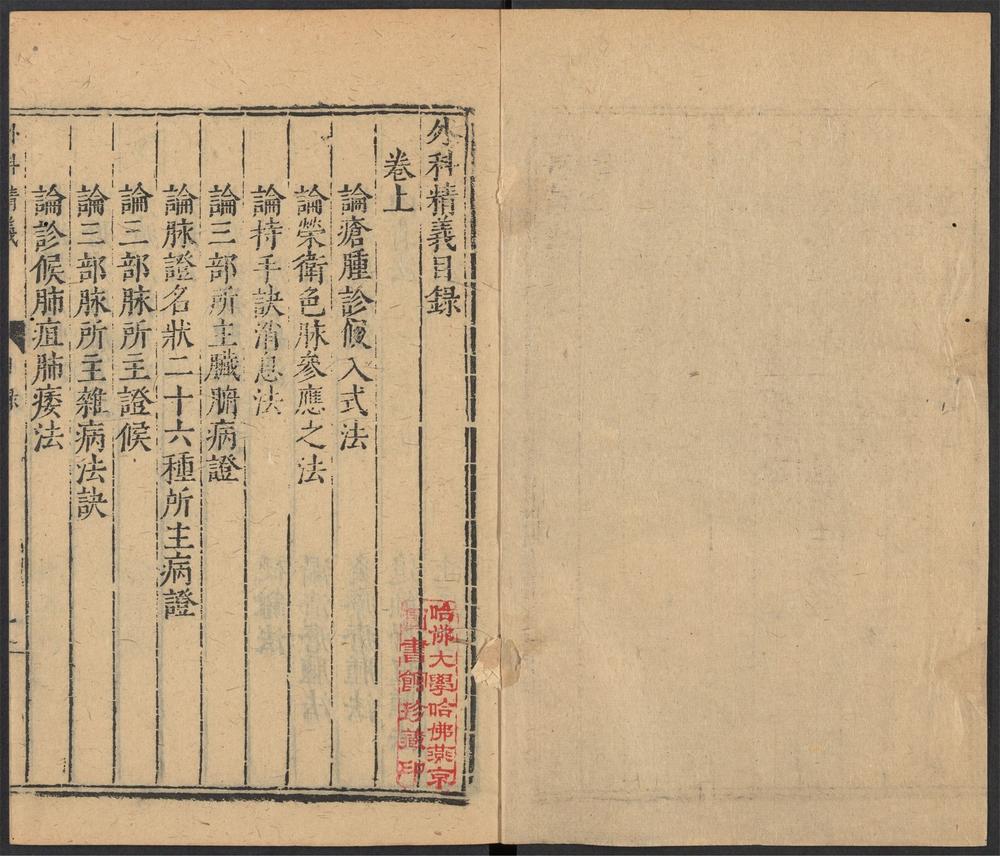 外科精義目錄
卷上
論瘡腫診候入式法
論榮衛色脉參應之法
論持手訣消息法
論三部所主臟腑病證
論脉證名狀二十六種所主病證
論三部脉所主證候
論三部脉所主雜病法訣
論診候肺疽肺痿法
外科精義
目錄
哈佛大學哈佛燕京
圖書館珍藏印